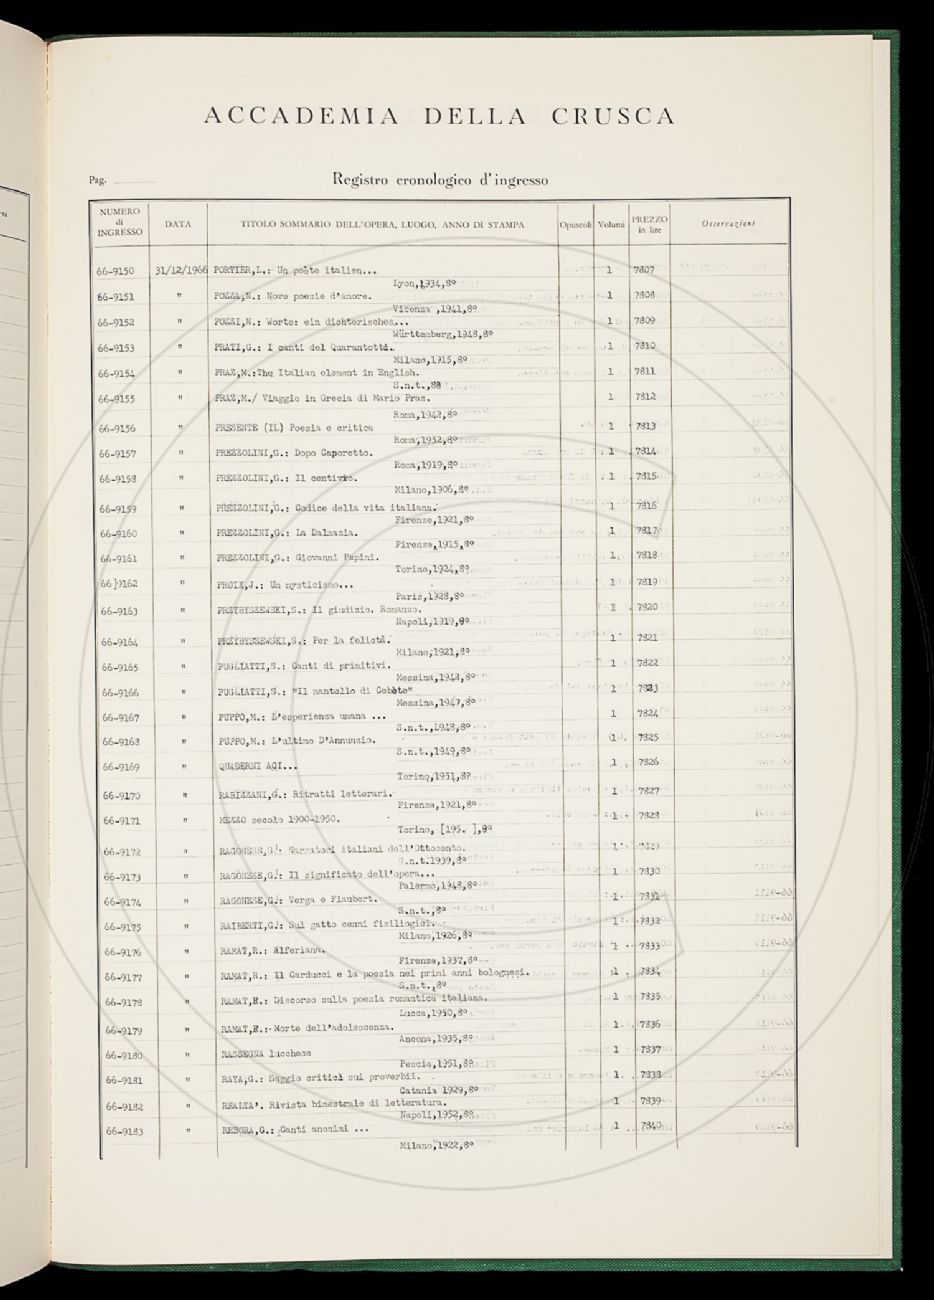 ACCADEMIA DELLA CRUSCA
Pag.
Registro cronologico d'ingresso
NUMERO di INGRESSO DATA TITOLO SOMMARIO DELL'OPERA, LUOGO, ANNO DI STAMPA Opuscoli Volumi PREZZO in lire Osservazioni
66-9150 31/12/1966 PORTIER,L.: Un poète italien... 1 7807
Lyon,1934,8º
66-9151 " POZZA,N.: Nove poesie d'amore. 1 7808
Vicenza ,1941,8º
66-9152 " POZZI,N.: Worte: ein dichterisches... 1 7809
Württemberg,1948,8º
66-9153 " PRATI,G.: I canti del Quarantotto. 1 7810
Milano,1915,8º
66-9154 " PRAZ,M.:The Italian element in English. 1 7811
S.n.t.,8º
66-9155 " PRAZ,M./ Viaggio in Grecia di Mario Praz. 1 7812
Roma,1942,8º
66-9156 " PRESENTE (IL) Poesia e critica 1 7813
Roma,1952,8º
66-9157 " PREZZOLINI,G.: Dopo Caporetto. 1 7814
Roma,1919,8º
66-9158 " PREZZOLINI,G.: Il centivio. 1 7815
Milano,1906,8º
66-9159 " PREZZOLINI,G.: Codice della vita italiana. 1 7816
Firenze,1921,8º
66-9160 " PREZZOLINI,G.: La Dalmazia. 1 7817
Firenze,1915,8º
66-9161 " PREZZOLINI,G.: Giovanni Papini. 1 7818
Torino,1924,8º
66)9162 " PROIX,J.: Un mysticismo... 1 7819
Paris,1928,8º
66-9163 " PRZYBYSZEWSKI,S.: Il giudizio. Romanzo. 1 7820
Napoli,1919,8º
66-9164 " PRZYBYSZEWSKI,S.: Per la felicità. 1 7821
Milano,1921,8º
66-9165 " PUGLIATTI,S.: Canti di primitivi. 1 7822
Messina,1942,8º
66-9166 " PUGLIATTI,S.: "Il mantello di Cebète" 1 7823
Messina,1947,8º
66-9167 " PUPPO,M.: L'esperienza umana ... 1 7824
S.n.t.,1948,8º
66-9168 " PUPPO,M.: L'ultimo D'Annunzio. 1 7825
S.n.t.,1949,8º
66-9169 " QUADERNI ACI... 1 7826
Torino,1951,8º
66-9170 " RABIZZANI,G.: Ritratti letterari. 1 7827
Firenze,1921,8º
66-9171 " MEZZO secolo 1900-1950. 1 7828
Torino, [195. ],8º
66-9172 " RAGONESE,G.: Narratori italiani dell'Ottocento. 1 7829
S.n.t.1939,8º
66-9173 " RAGONESE,G.: Il significato dell'opera... 1 7830
Palermo,1948,8º
66-9174 " RAGONESE,G.: Verga e Flaubert. 1 7831
S.n.t.,8º
66-9175 " RAIBERTI,G.: Sul gatto cenni fisiliogici. 1 7832
Milano,1926,8º
66-9176 " RAMAT,R.: Alferiana. 1 7833
Firenze,1937,8º
66-9177 " RAMAT,R.: Il Carducci e la poesia nei primi anni bolognesi. 1 7834
S.n.t.,8º
66-9178 " RAMAT,R.: Discorso sulla poesia romantica italiana. 1 7835
Lucca,1950,8º
66-9179 " RAMAT,R.: Morte dell'adolescenza. 1 7836
Ancona,1935,8º
66-9180 " RASSEGNA lucchese 1 7837
Pescia,1951,8º
66-9181 " RAYA,G.: Saggio critici sui proverbii. 1 7838
Catania 1929,8º
66-9182 " REALTA'. Rivista bimestrale di letteratura. 1 7839
Napoli,1952,8º
66-9183 " REBORA,G.: Canti anonimi ... 1 7840
Milano,1922,8º